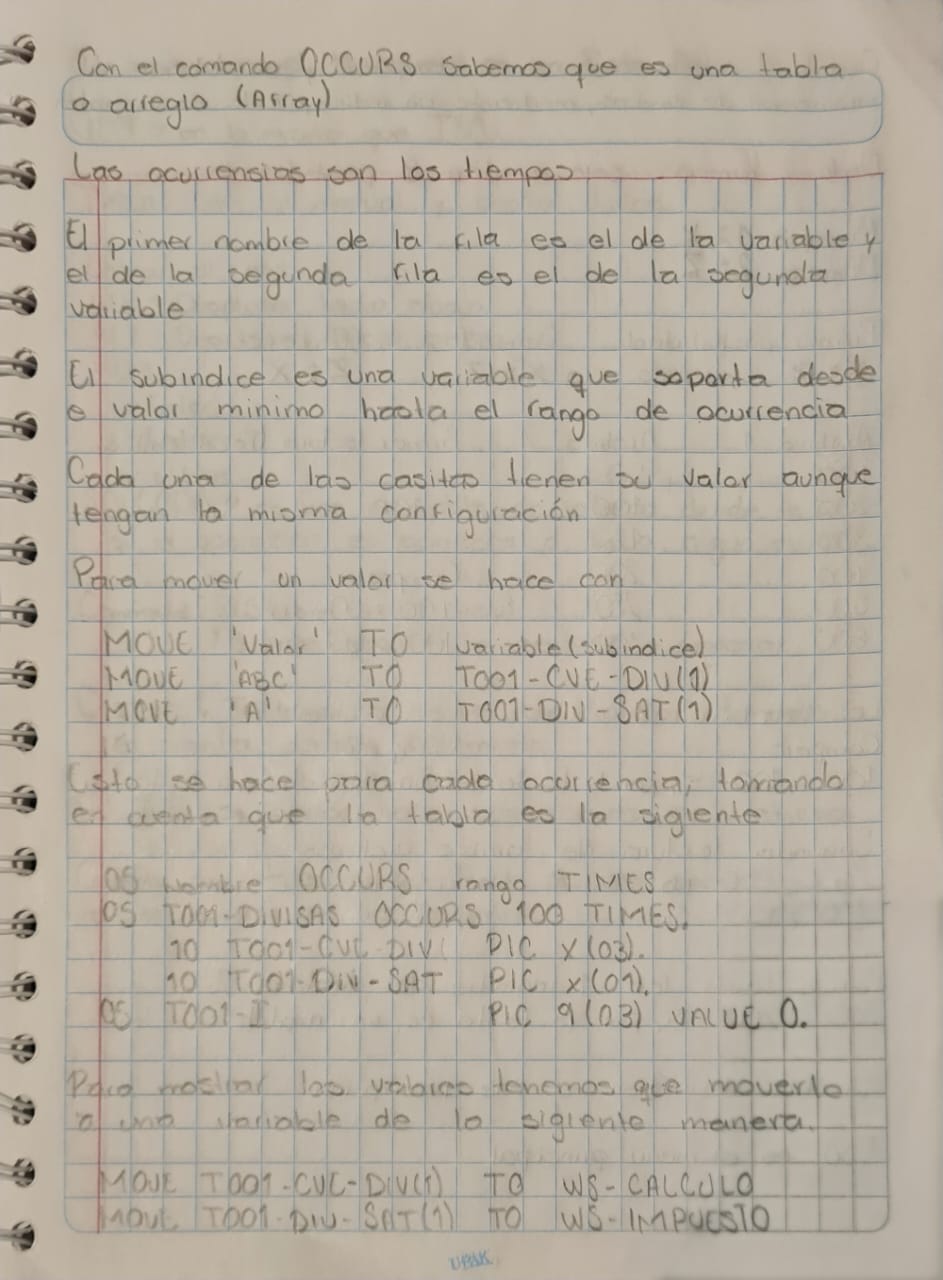 Con el comando OCCURS sabemos que es una tabla
o arreglo (Array)
Las ocurrensias son los tiempos
El primer nombre de la fila es el de la variable y
el de la segunda fila es el de la segunda
variable
El subindice es una variable que soporta desde
e valor minimo hasta el rango de ocurrencia
Cada una de las casitas tienen su valor aunque
tengan la misma configuración
Para mover un valor se hace con
MOVE 'Valor' TO variable(subindice)
MOVE 'ABC' TO T001-CVE-DIV(1)
MOVE 'A' TO T001-DIV-SAT(1)
Esto se hace para cada ocurrencia, tomando
en cuenta que la tabla es la sigiente
05 Nombre OCCURS rango TIMES
05 T001-DIVISAS OCCURS 100 TIMES.
10 T001-CVE-DIV PIC X(03).
10 T001-DIV-SAT PIC X(01).
05 T001-I PIC 9(03) VALUE 0.
Para mostrar los valores tenemos que moverlo
a una variable de la sigiente manera.
MOVE T001-CVE-DIV(1) TO WS-CALCULO
MOVE T001-DIV-SAT(1) TO WS-IMPUESTO